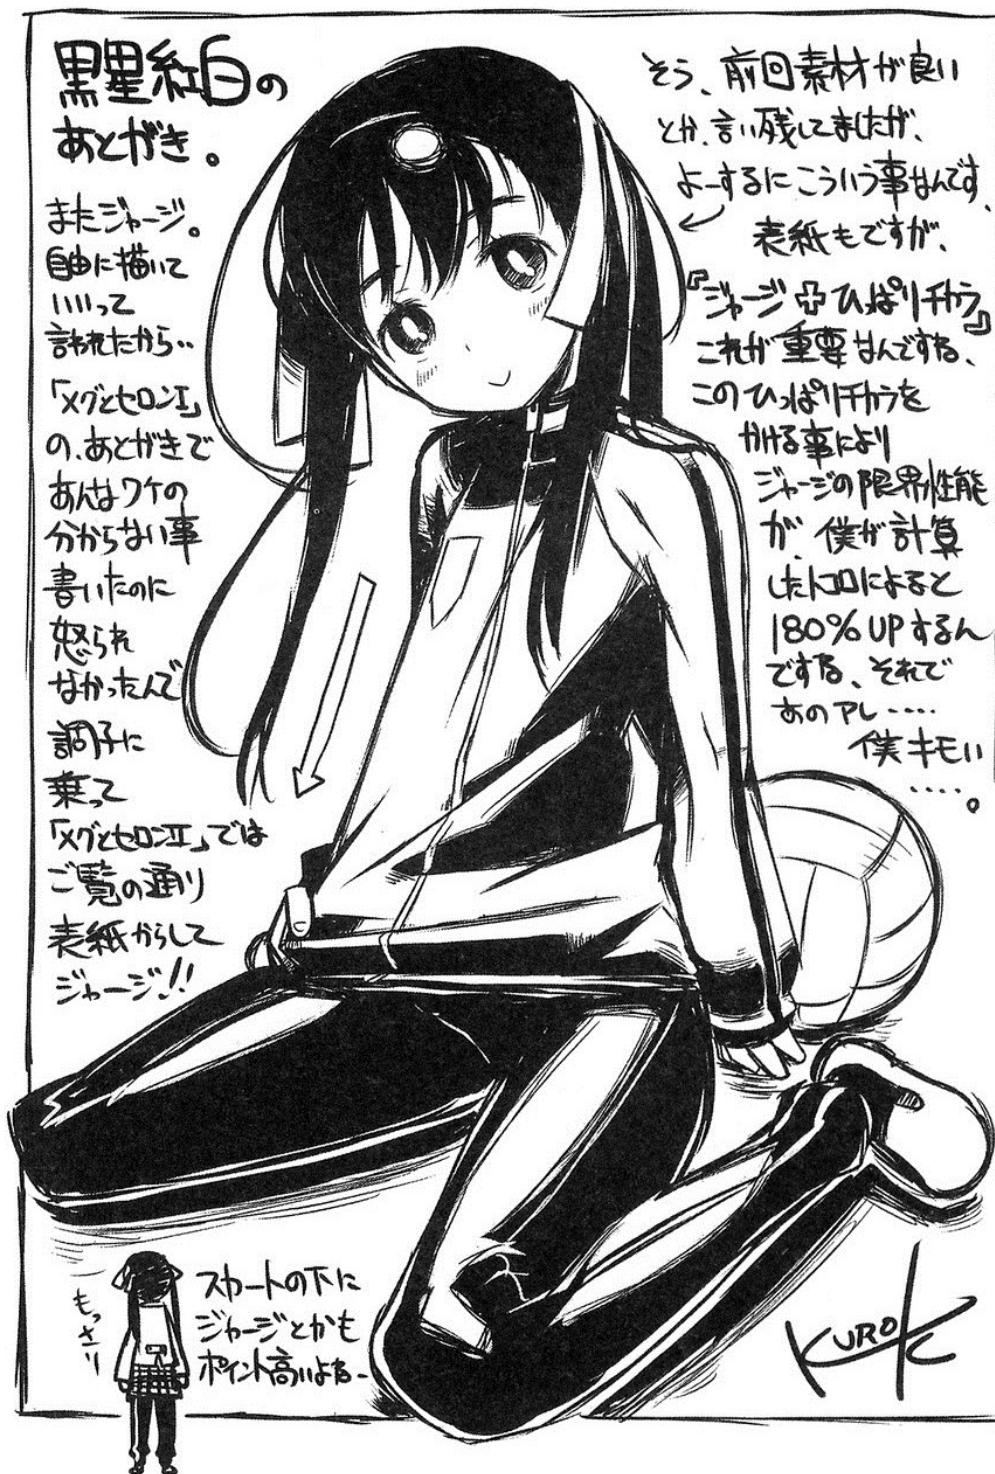 黒星紅白の
あとがき。
またジャージ。
自由に描いて
いいって
言われたから‥
「メグとセロンⅠ」
の、あとがきで
あんなワケの
分からない事
書いたのに
怒られ
なかったんで
調子に
乗って
「メグとセロンⅡ」では
ご覧の通り
表紙からして
ジャージ!!
そう、前回素材が良い
とか、言い残してましたが、
よーするにこういう事なんです、
表紙もですが、
『ジャージ+ひっぱりチカラ』
これが重要なんですね、
このひっぱりチカラを
かける事により
ジャージの限界性能
が、僕が計算
したトコロによると
180%UPするん
ですね、それで
あのアレ‥‥
僕キモい
‥‥。
もっさり
スカートの下に
ジャージとかも
ポイント高いよね-
KUROK